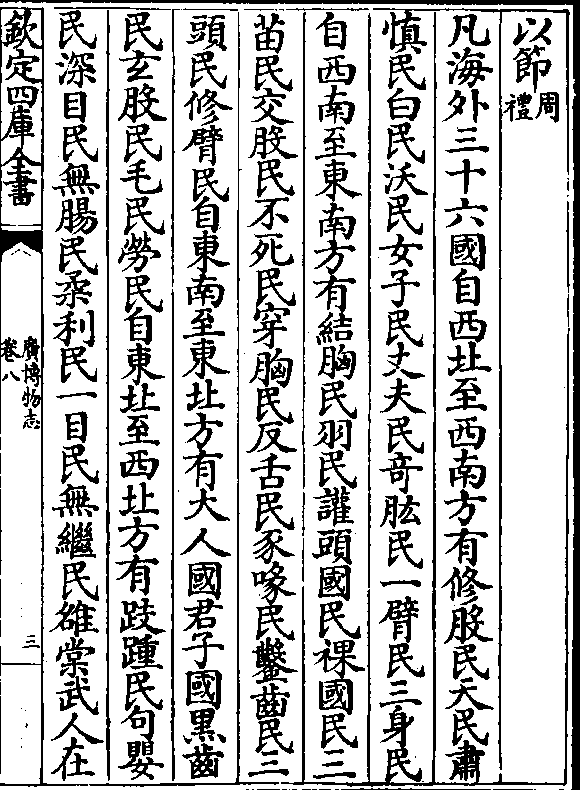 以節周禮
凡海外三十六國自西北至西南方有修股民天民肅
慎民白民沃民女子民丈夫民奇肱民一臂民三身民
自西南至東南方有結胸民羽民讙頭國民裸國民三
苗民交股民不死民穿胸民反舌民豕喙民鑿齒民三
頭民修臂民自東南至東北方有大人國君子國黒齒
民玄股民毛民勞民自東北至西北方有跂踵民句嬰
民深目民無腸民柔利民一目民無繼民雒棠武人在
欽定四庫全書
廣博物志
卷八
三